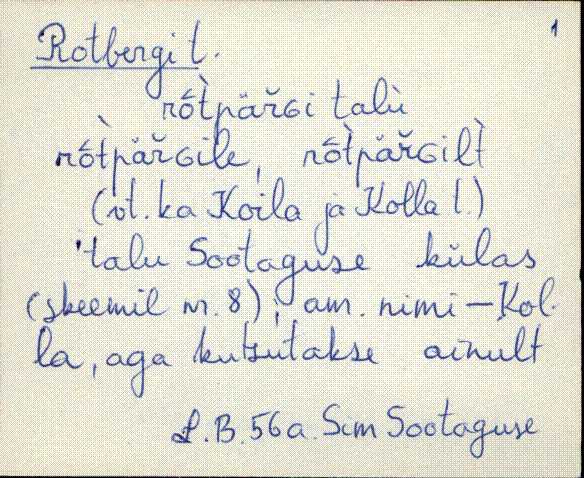 1
Rotbergi t.
rótpär̆ɢi talù
rótpär̆ɢile, rótpär̆ɢilt
(vt. ka Koila ja Kolla t.)
'talu Sootaguse külas
(skeemil nr. 8); am. nimi – Kol-
la, aga kutsutakse ainult
L.B. 56a. Sim Sootaguse